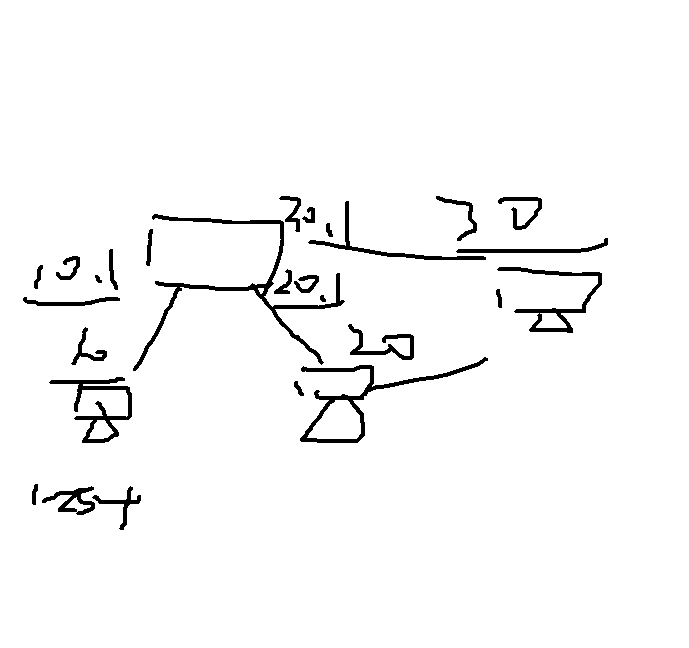 30.1
30
10.1
20.1
20
1-254